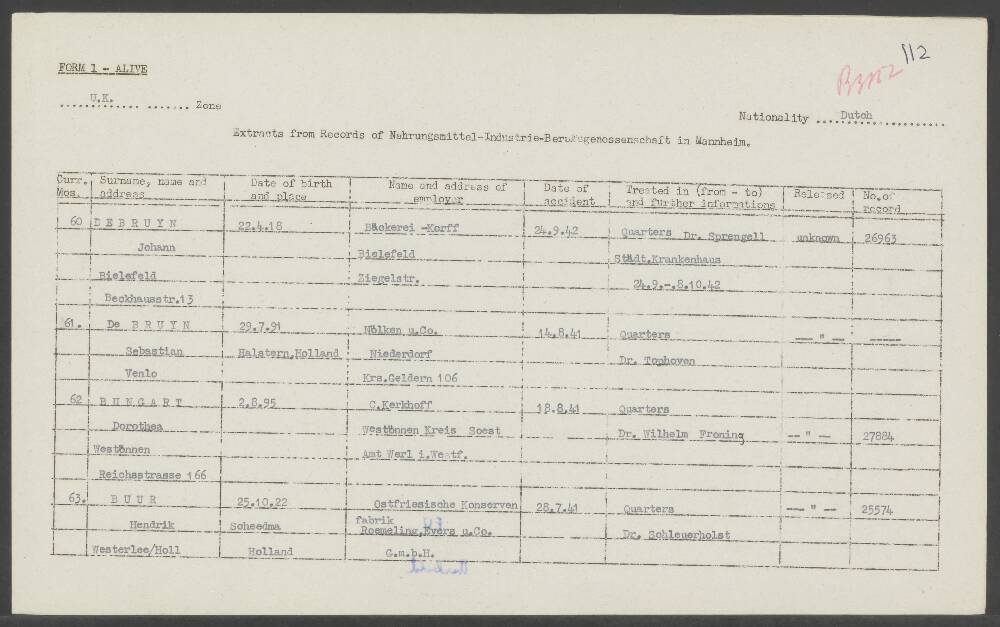 112
B3152
FORM 1 - ALIVE
U.K. Zone
Nationality Dutch
Extracts from Records of Nahrungsmittel-Industrie-Berufsgenossenschaft in Mannheim.
Curr. Nos. | Surname, name and address | Date of birth and place | Name and address of employer | Date of accident | Treated in (from - to) and further informations | Released | No.of record
60 | DEBRUYN | 22.4.18 | Bäckerei -Korff | 24.9.42 | Quarters Dr. Sprengell | unknown | 26963
Johann | Bielefeld | Städt.Krankenhaus
Bielefeld | Ziegelstr. | 24.9.-.8.10.42
Beckhausstr.13
61. | De BRUYN | 29.7.91 | Nölken u.Co. | 14.8.41 | Quarters | — " — | ----
Sebastian | Halstern,Holland | Niederdorf | Dr. Tophoven
Venlo | Krs.Geldern 106
62 | BUNGART | 2.8.95 | C.Kerkhoff | 18.8.41 | Quarters
Dorothea | Westönnen Kreis Soest | Dr. Wilhelm Froming | — " — | 27884
Westönnen | Amt Werl i.Westf.
Reichsstrasse 166
63. | BUUR | 25.10.22 | Ostfriesische Konserven | 28.7.41 | Quarters | — " — | 25574
Hendrik | Scheedma | fabrik Roemeling,Evers u.Co. | Dr. Schleuerholst
Westerlee/Holl | Holland | G.m.b.H.